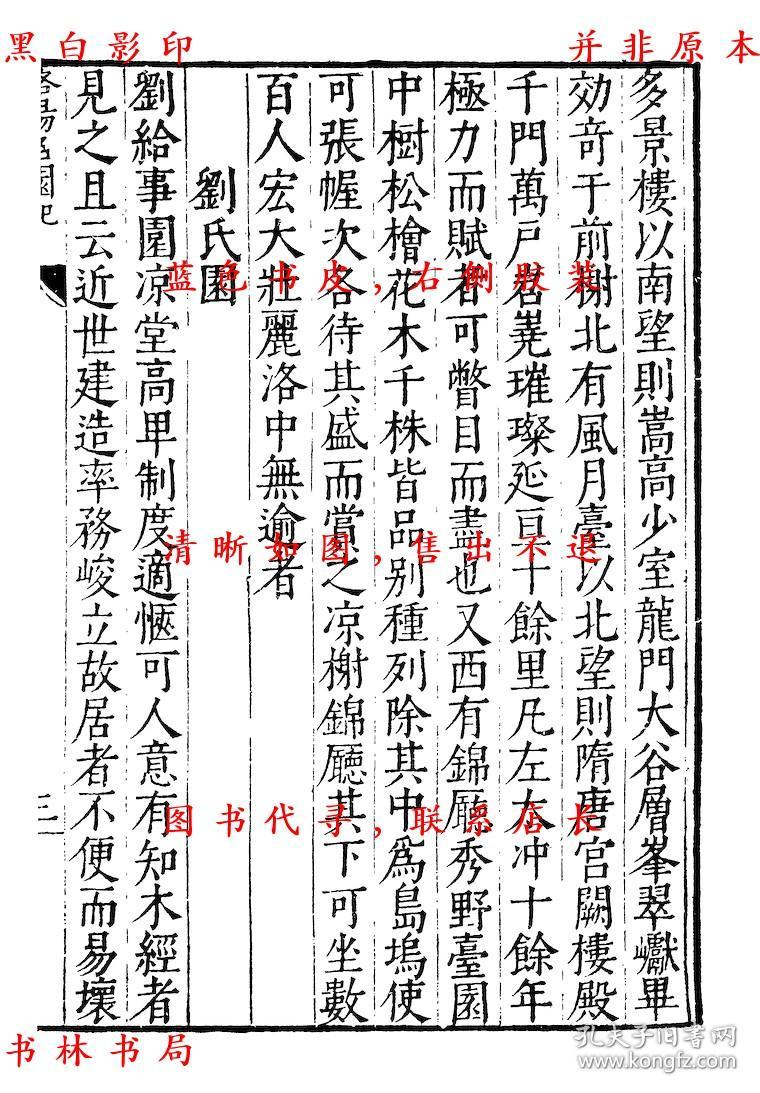 黑白影印
并非原本
多景樓以南望則嵩高少室龍門大谷層峯翠巘畢
効奇于前榭北有風月臺以北望則隋唐宮闕樓殿
千門萬戶岧嶤璀璨延亘十餘里凡左太冲十餘年
極力而賦者可瞥目而盡也又西有錦廳秀野臺園
中樹松檜花木千株皆品别種列除其中為島塢使
可張幄次各待其盛而賞之凉榭錦廳其下可坐數
百人宏大壯麗洛中無逾者
劉氏園
劉給事園凉堂高卑制度適愜可人意有知木經者
見之且云近世建造率務峻立故居者不便而易壞
洛陽名園記
三
蓝色书皮,右侧胶装
清晰如图,售出不退
图书代寻,联系店长
书林书局
孔夫子旧书网
www.kongfz.com